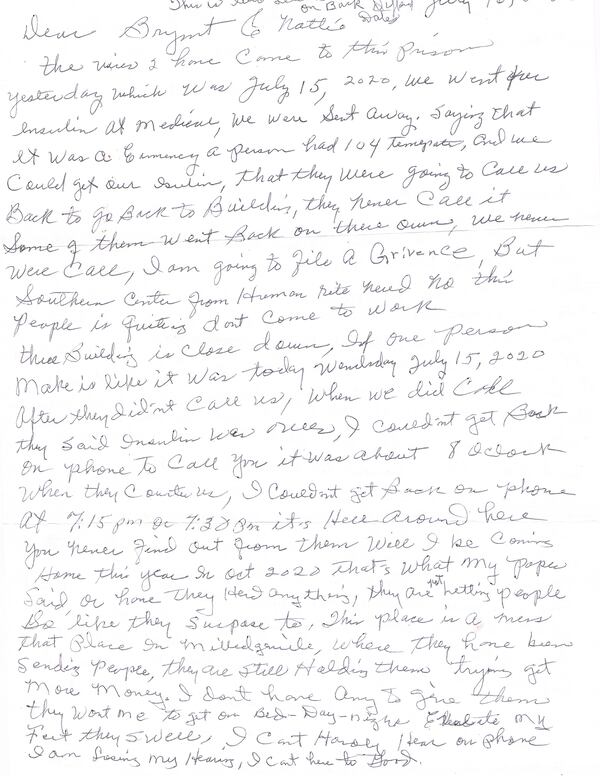 This is
on Back
Dates
Dear Brynnt & Nattie
the virus 2 have Come to this Prison
yesterday which was July 15, 2020, we went for
insulin at medical, we were Sent away. Saying that
it was a Emnency a person had 104 temepature, and we
Could get our Isulin, that they were going to Call us
Back to go Back to Building, they never Call it
Some of them went Back on there own, we never
were Call, I am going to file a Grivance, But
Southern Center from Human rite need No this
People is quiting dont come to work
three Building is Close down, If one person
make is like it was today Wendusday July 15, 2020
After they didn't Call us, when we did Call
they Said Insulin was over, I couldn't get Back
on phone to Call you it was about 8 Oclock
When they Counte us, I Couldnt get Back on phone
At 7:15 pm or 7:30 pm it's Here around here
you never find out from them Will I be Coming
Home this year in Oct 2020 that's what my paper
Said or have they Herd anything, they are not letting people
Go like they Suspose to. This place is a mess
that Place In Milledgeville, where they have been
Sending People, they are Still Holding them trying get
More Money. I don't have Any to give them
they Want me to get on Bed-Day-night Elevate my
Feet they Swell, I Can't Hardly Hear on phone
I am Losing my Hearing, I cant here to Good.